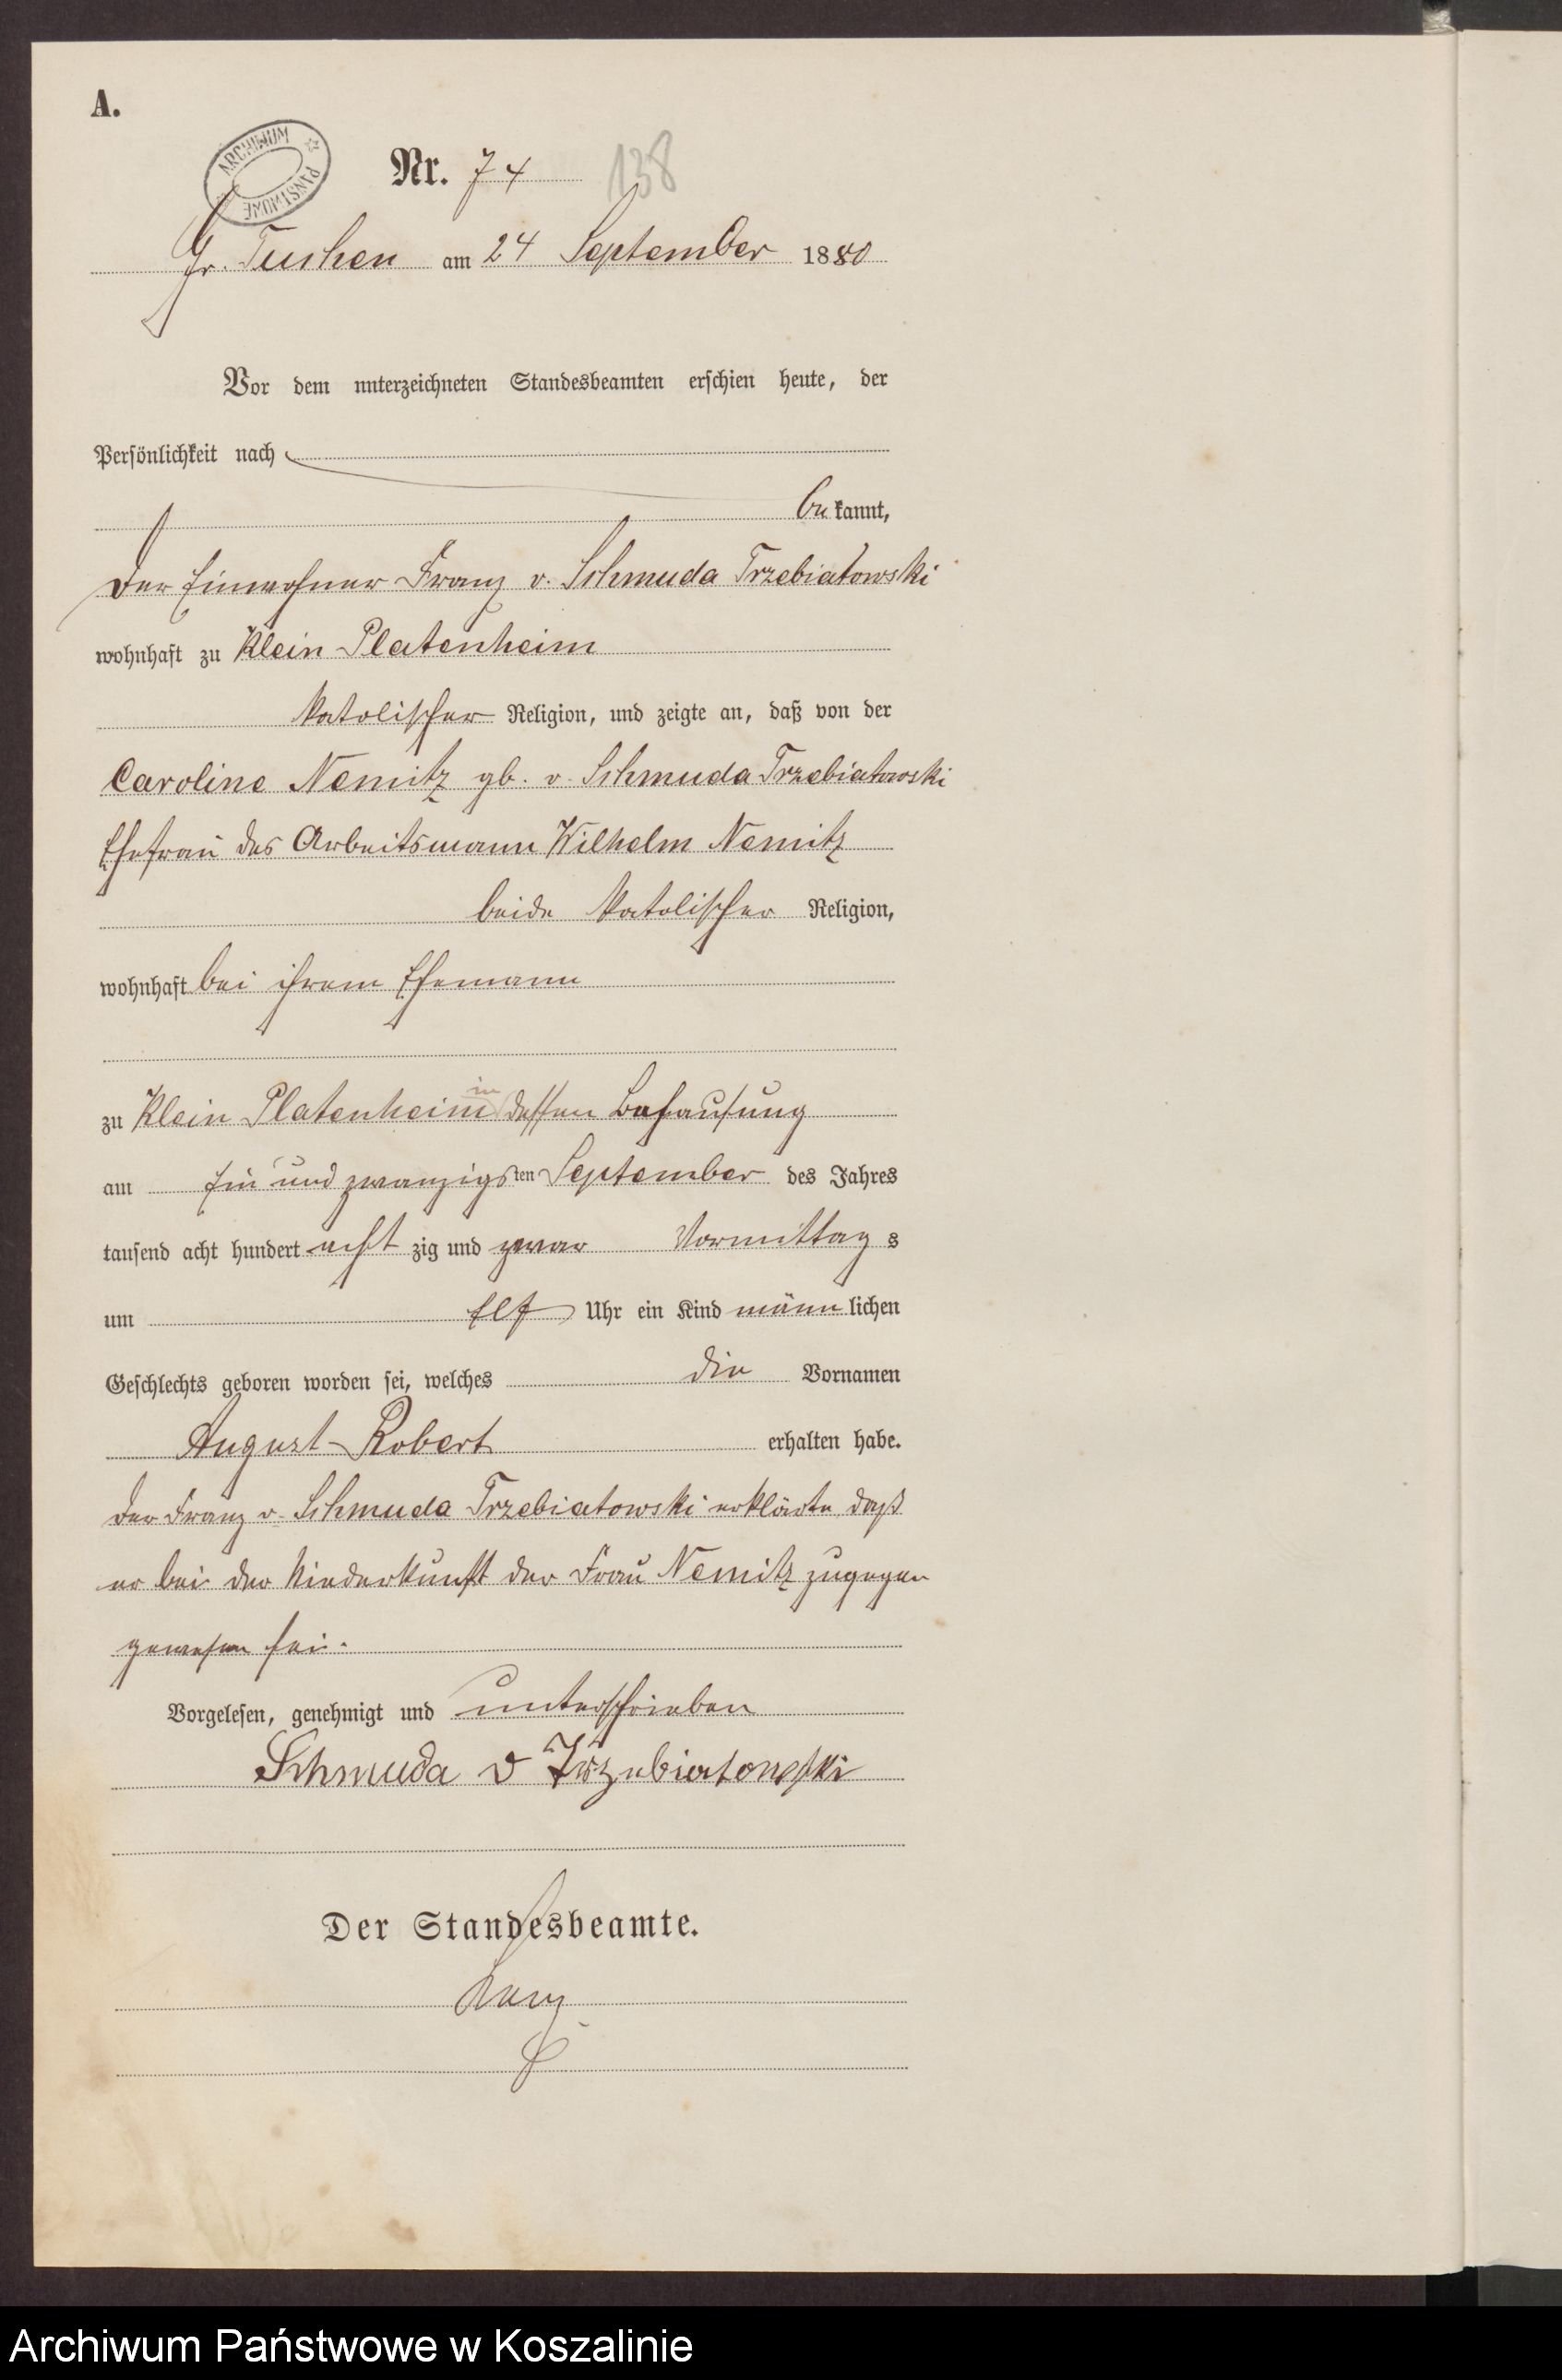 A.
ARCHIWUM PAŃSTWOWE
Nr. 74 138
Gr. Tuchen am 24 September 1880
Vor dem unterzeichneten Standesbeamten erschien heute, der
Persönlichkeit nach
bekannt,
der Einwohner Franz v. Schmuda Trzebiatowski
wohnhaft zu Klein Platenheim
katolischer Religion, und zeigte an, daß von der
Caroline Nemitz gb. v. Schmuda Trzebiatowski
Ehefrau des Arbeitsmann Wilhelm Nemitz
beide katolischer Religion,
wohnhaft bei ihrem Ehemann
zu Klein Platenheim in dessen Behausung
am ein und zwanzigsten September des Jahres
tausend acht hundert acht zig und zwar Vormittags
um elf Uhr ein Kind männlichen
Geschlechts geboren worden sei, welches die Vornamen
August Robert erhalten habe.
Der Franz v. Schmuda Trzebiatowski erklärte, daß
er bei der Niederkunft der Frau Nemitz zugegen
gewesen sei.
Vorgelesen, genehmigt und unterschrieben
Schmuda v Trzebiatowski
Der Standesbeamte.
Archiwum Państwowe w Koszalinie